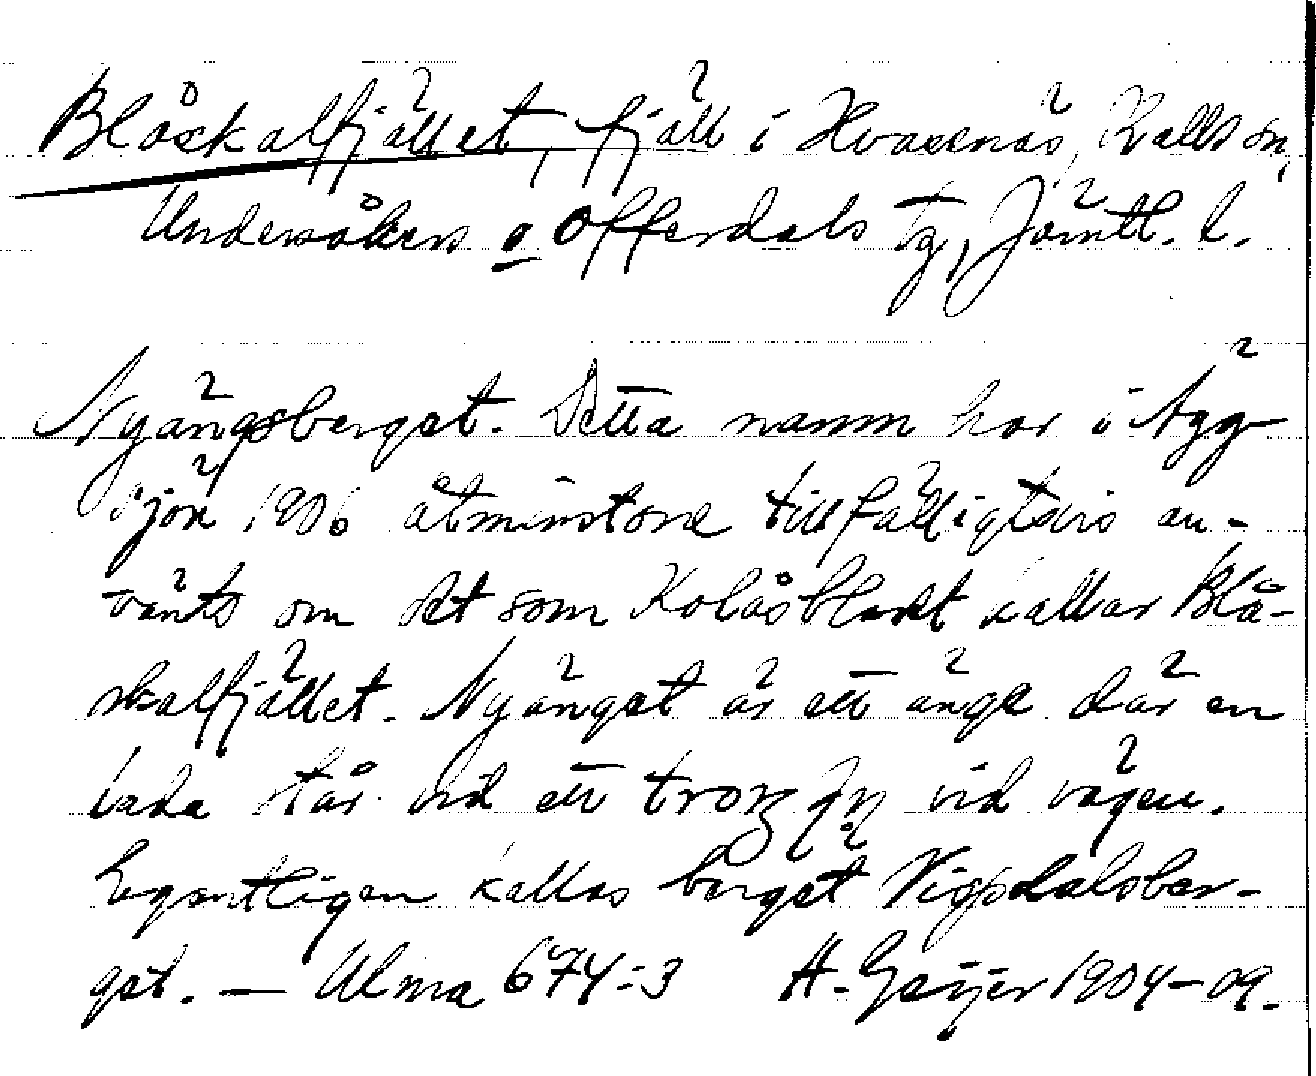 Blåskalfjället, fjäll i Hvasenäs, Kallssn,
Undersåkers o Offerdals tg, Jämtl. l.
Nyängsberget. Detta namn har i Ägg-
sjön 1906 åtminstone tillfälligtvis an-
vänts om det som Kolåsbladet kallar Blå-
skalfjället. Nyänget är ett änge där en
lada står vid ett vid vägen.
Egentligen kallas berget Vigsdalsber-
get. — Ulma 674:3 H. Geijer 1904-09.